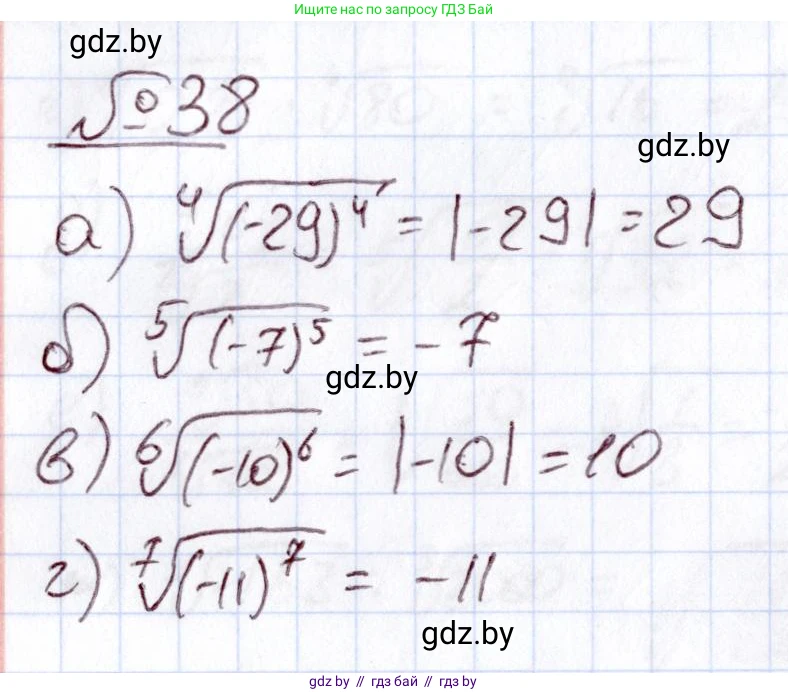 Ищите нас по запросу ГДЗ Бай
gdz.by
№38
gdz.by
а) ⁴√(-29)⁴ = |-29| = 29
б) ⁵√(-7)⁵ = -7
gdz.by
в) ⁶√(-10)⁶ = |-10| = 10
г) ⁷√(-11)⁷ = -11
gdz.by
gdz.by // гдз бай // gdz.by